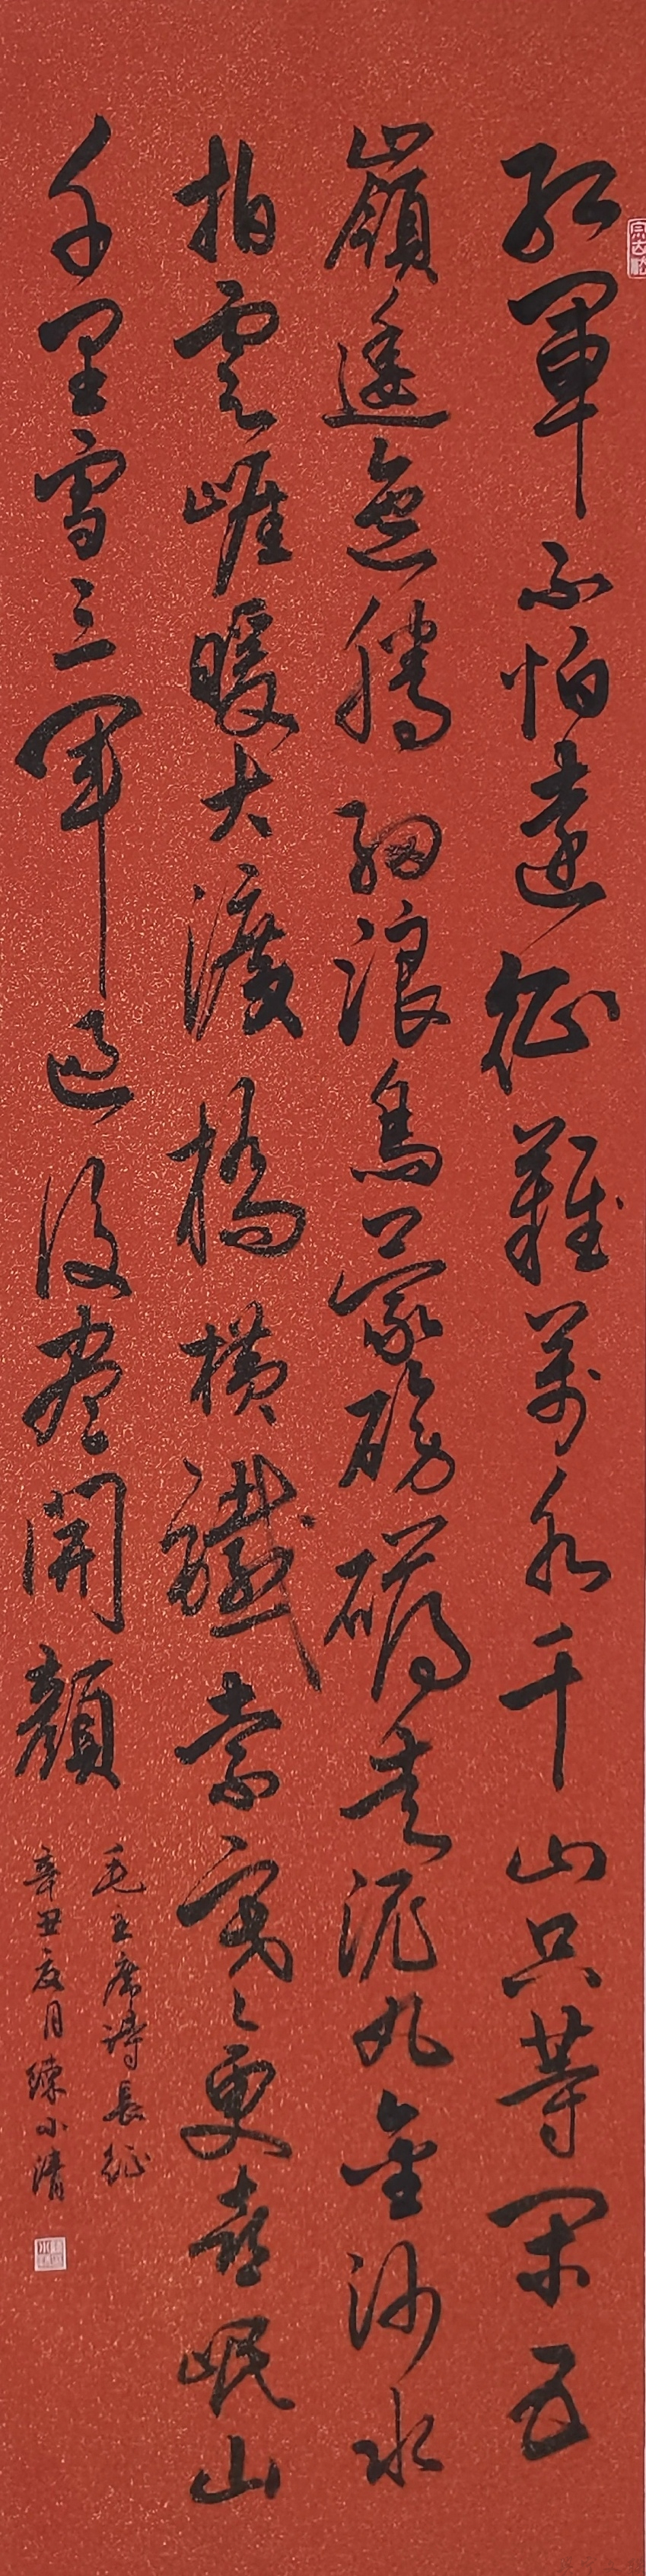 红軍不怕遠征難萬水千山只等閑五
嶺逶迤騰細浪烏蒙磅礴走泥丸金沙水
拍雲崖暖大渡橋橫鐵索寒〻更喜岷山
千里雪三軍过後盡開顏
毛主席詩長征
辛丑夏月練小清